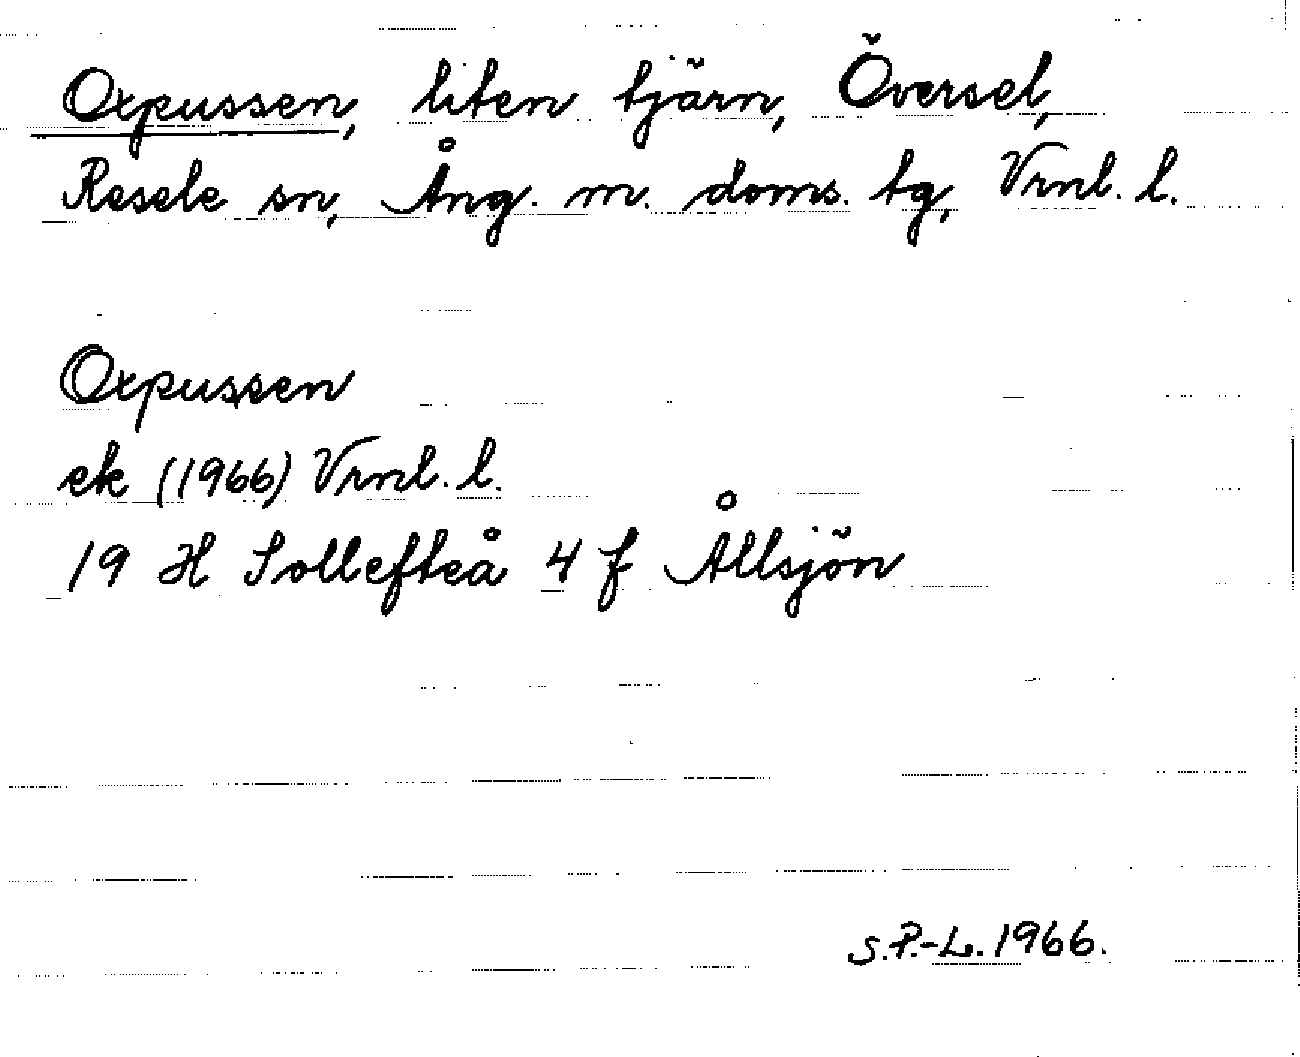 Oxpussen, liten tjärn, Översel,
Resele sn, Ång. m. doms. tg, Vrnl. l.
Oxpussen
ek (1966) Vrnl. l.
19 H Sollefteå 4 f Ållsjön
S.P.-L. 1966.